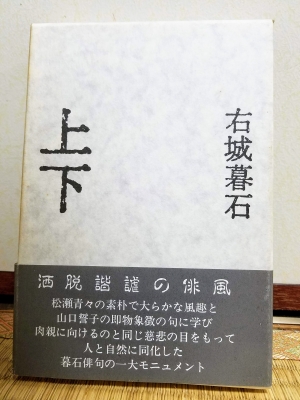 右城暮石
上下
洒脱諧謔の俳風
松瀬青々の素朴で大らかな風趣と
山口誓子の即物象徴の句に学び
肉親に向けるのと同じ慈悲の目をもって
人と自然に同化した
暮石俳句の一大モニュメント